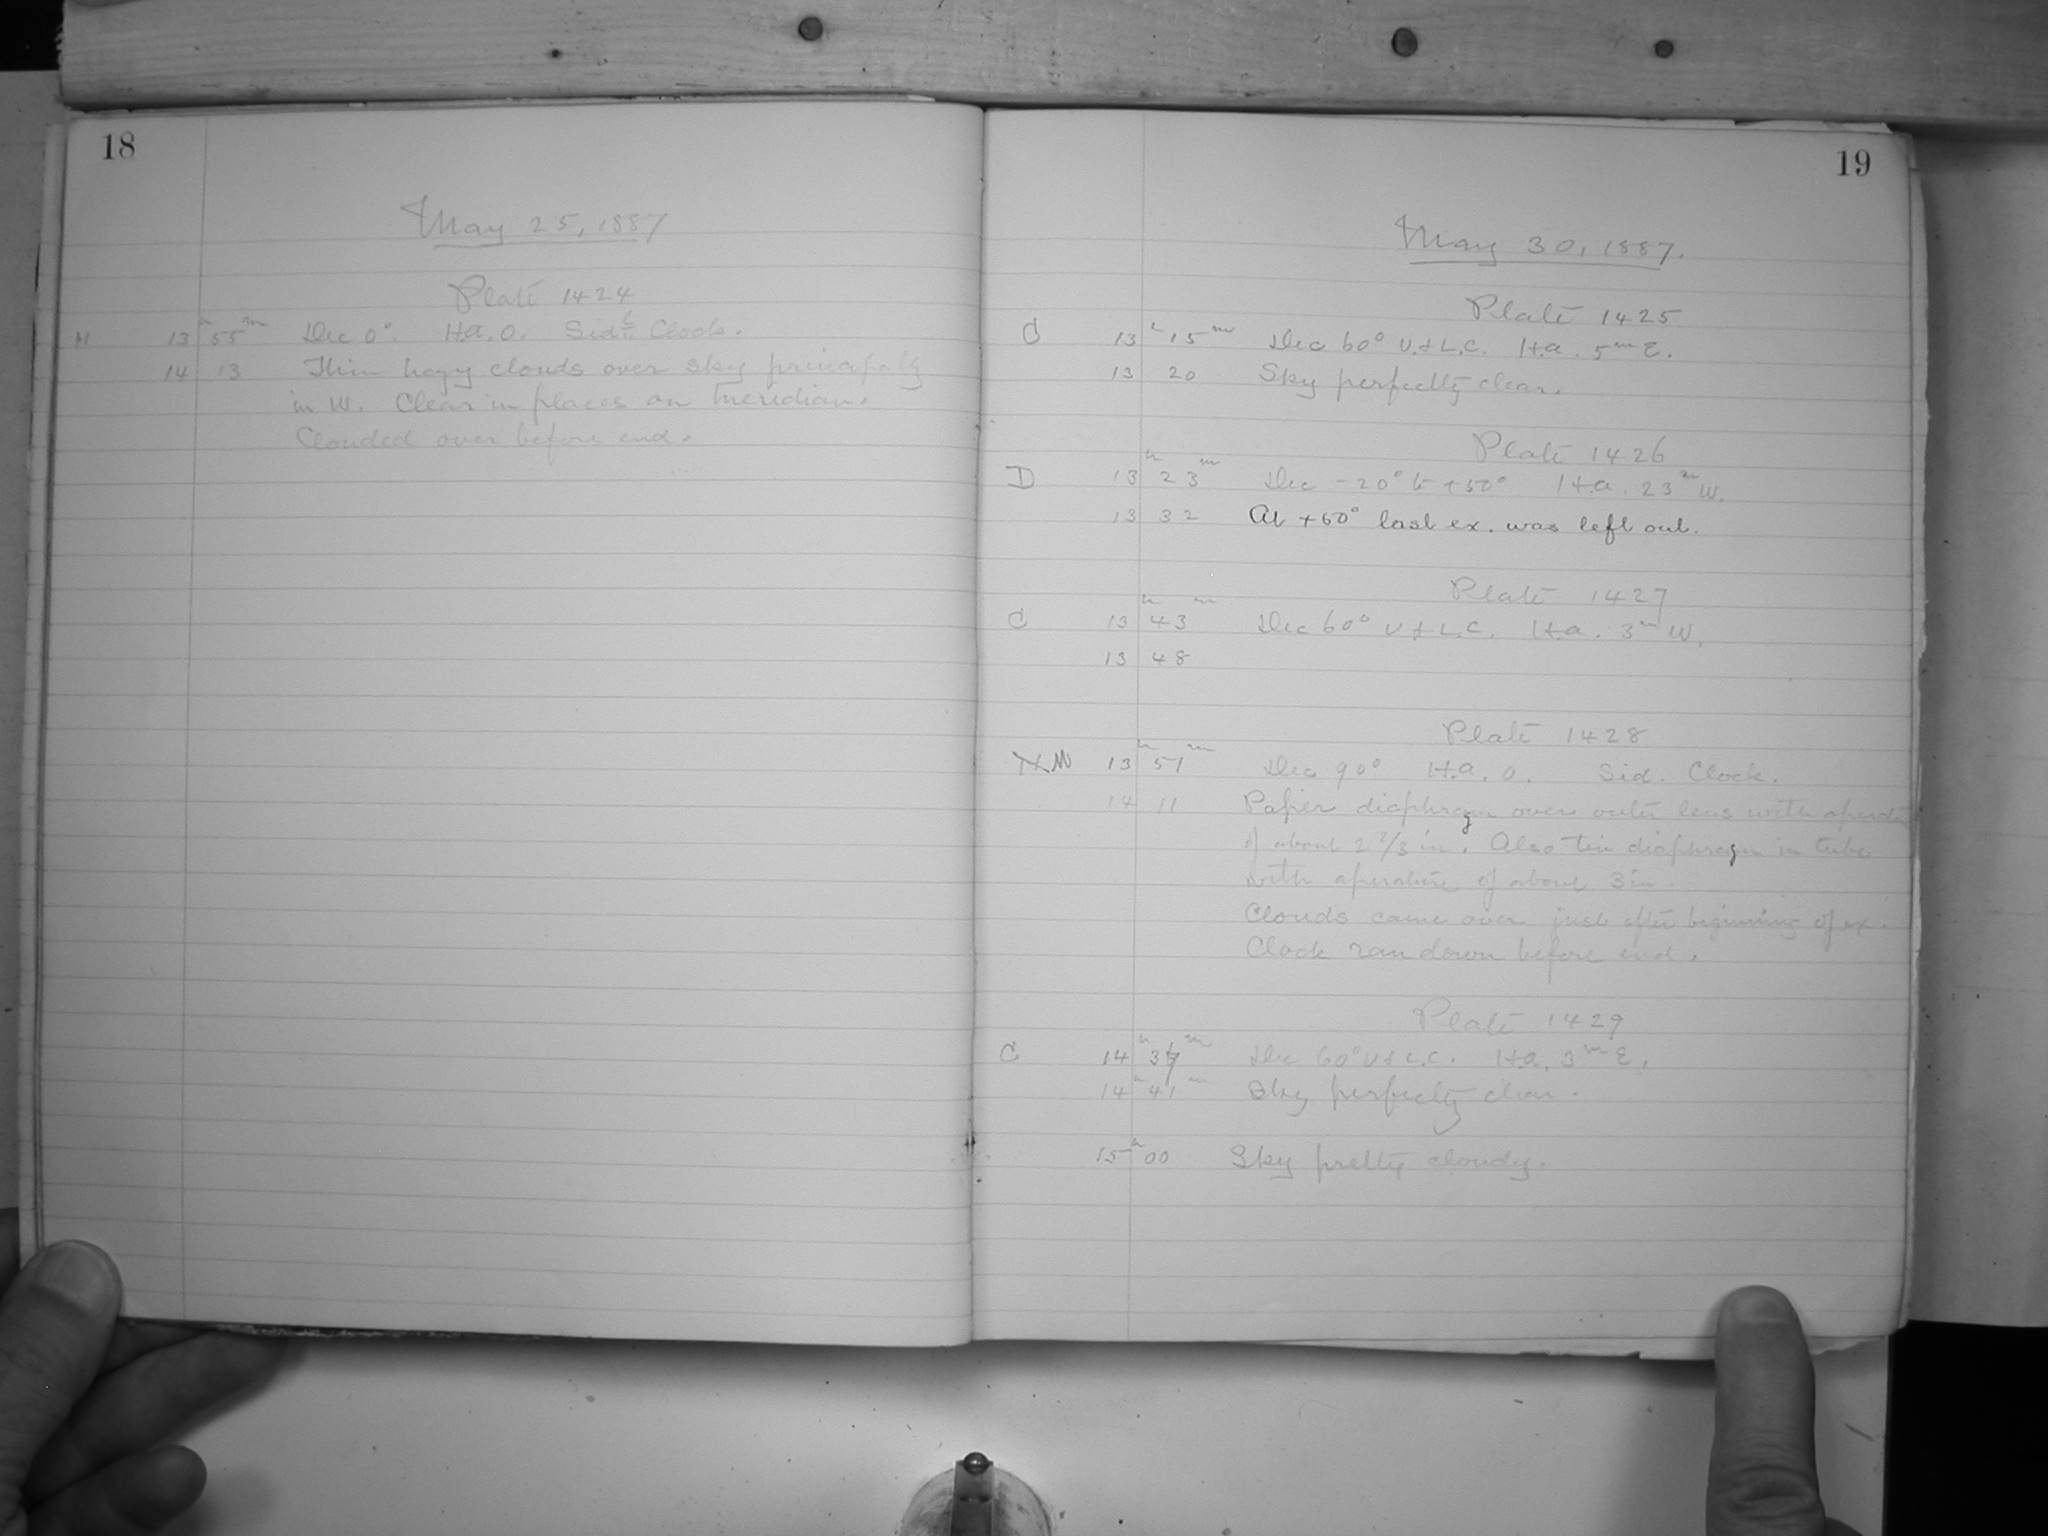 18
May 25, 1887
Plate 1424
H 13h 55m Dec 0°. H.a. 0. Sidl Clock.
14 13 Thin hazy clouds over sky principally
in W. Clear in places on meridian.
Clouded over before end.
19
May 30, 1887.
Plate 1425
C 13h 15m Dec 60° U.&L.C. H.a. 5m E.
13 20 Sky perfectly clear.
Plate 1426
D 13h 23m Dec -20° to +50° H.a. 23m W.
13 32 At +60° last ex. was left out.
Plate 1427
C 13h 43m Dec 60° U&L.C. H.a. 3m W.
13 48
Plate 1428
M 13h 51m Dec 90° H.a. 0. Sid. Clock.
14 11 Paper diaphragm over outer lens with
of about 2 2/3 in. Also tin diaphragm in tube
with aperature of about 3 in.
Clouds came over just after beginning of ex.
Clock ran down before end.
Plate 1429
C 14h m Dec 60° U&L.C. H.a. 3m E.
14h 41m Sky perfectly clear.
15h 00 Sky pretty cloudy.